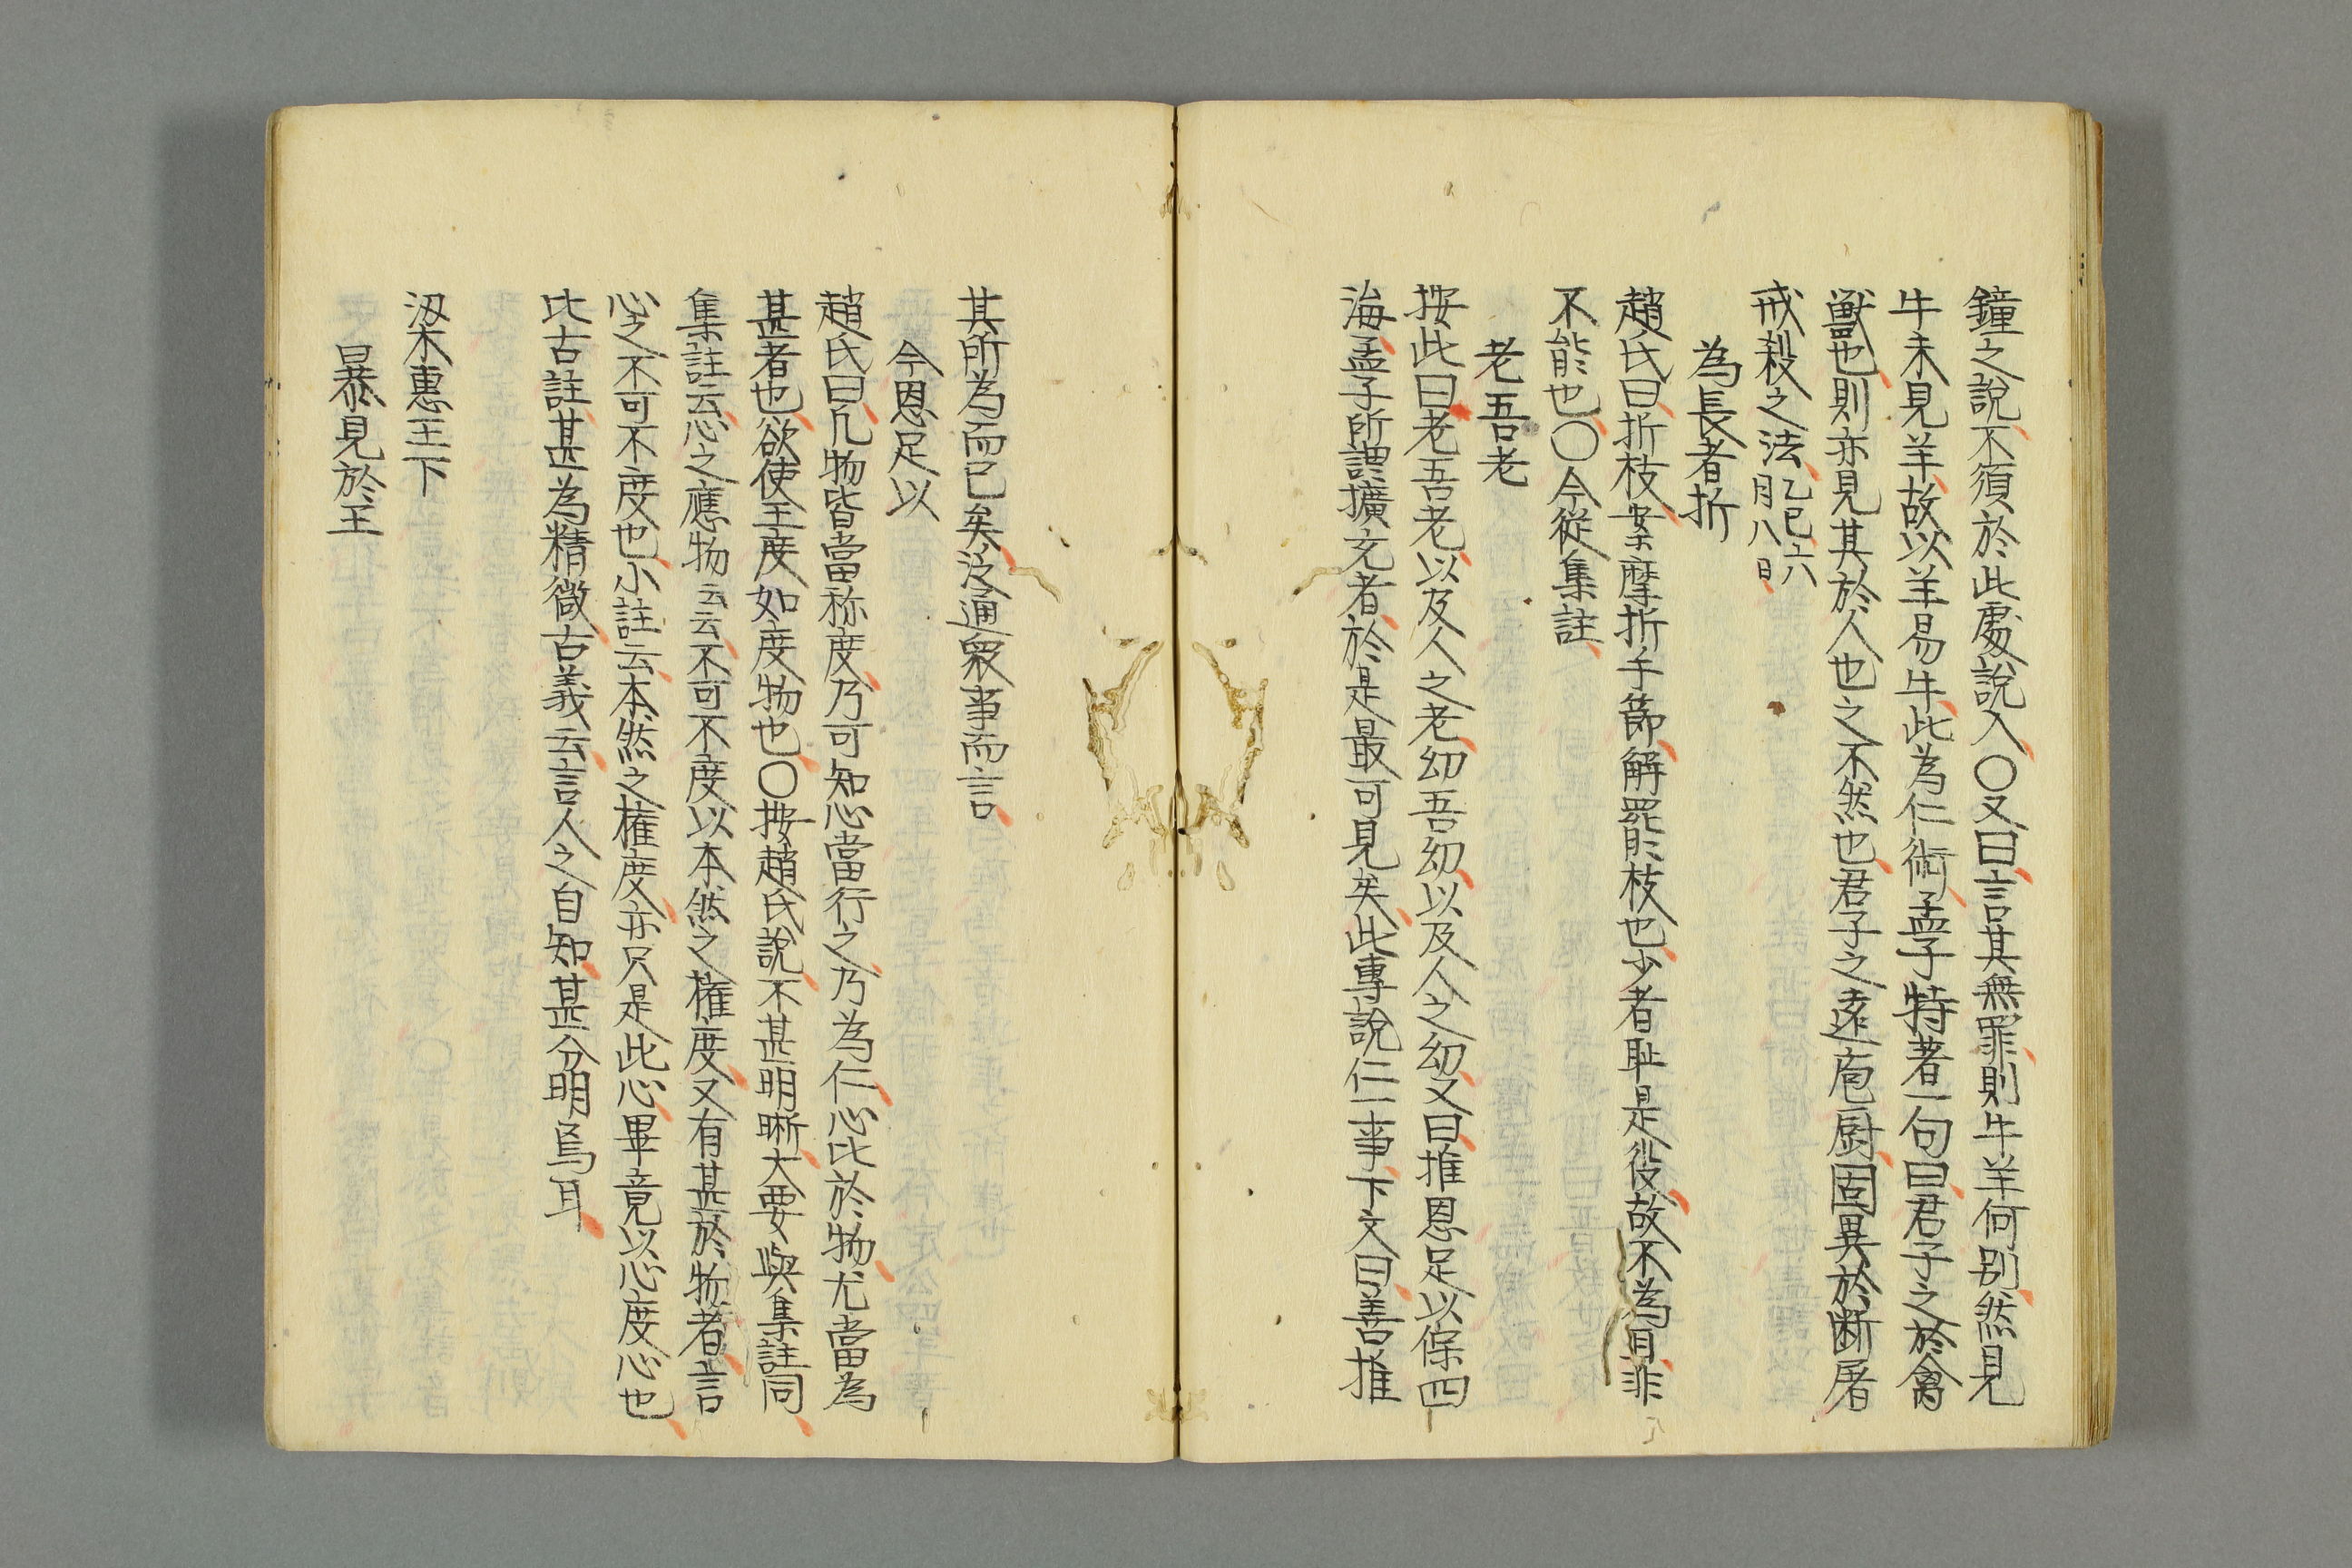 鐘之說不須於此處說入〇又曰言其無罪則牛羊何別然見
牛未見羊故以羊易牛此為仁術孟子特著一句曰君子之於禽
獸也則亦見其於人也之不然也君子之遠庖厨固異於断屠
戒殺之法乙巳六
月八日
為長者折
趙氏曰折枝案摩折手節解罷枝也少者耻是役故不為耳非
不能也〇今從集註
老吾老
按此曰老吾老以及人之老幼吾幼以及人之幼又曰推恩足以保四
海孟子所謂擴充者於是最可見矣此專說仁一事下文曰善推
其所為而已矣泛通衆事而言
今恩足以
趙氏曰凡物皆當称度乃可知心當行之乃為仁心比於物尤當為
甚者也欲使王度如度物也〇按趙氏說不甚明晰大要與集註同
集註云心之應物云云不可不度以本然之權度又有甚於物者言
心之不可不度也小註云本然之權度亦只是此心畢竟以心度心也
比古註甚為精微古義云言人之自知甚分明焉耳
梁惠王下
暴見於王